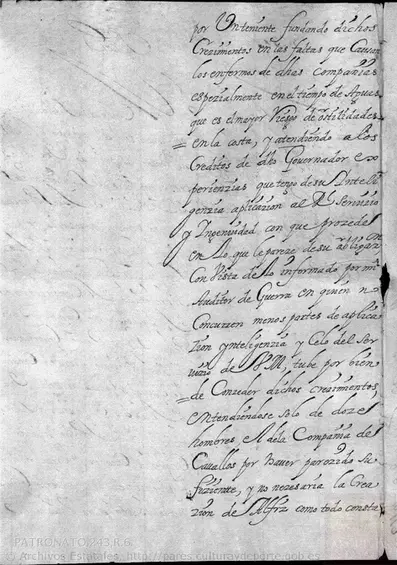 por Un teniente fundando dichos
Crezimientos en las faltas que Causan
los enfermos de dhas Companias
espezialmente en el tiempo de Aguas
que es el mayor Riesgo de ostilidades
en la costa, y atendiendo a los
Creditos de dho Governador ex
perienzias que tengo de su Intelli
genzia aplicazion al Rl Servicio
y Ingenuidad con que prozede
en Lo que le pareze de su obligazon
Con Vista de lo informado por mi
Auditor de Guerra en quien no
Concurren menos partes de aplica
zion ynteligenzia y Celo del Ser
vizio de SM, tube por bien
de Conzeder dichos crezimientos,
entendiendose solo de doze
hombres el de la Compañia de
Cavallos por haver parezido su
fiziente, y no nezesaria la Crea
zion de Alfrz como todo consta
PATRONATO,243,R.6
© Archivos Estatales, http://pares.culturaydeporte.gob.es